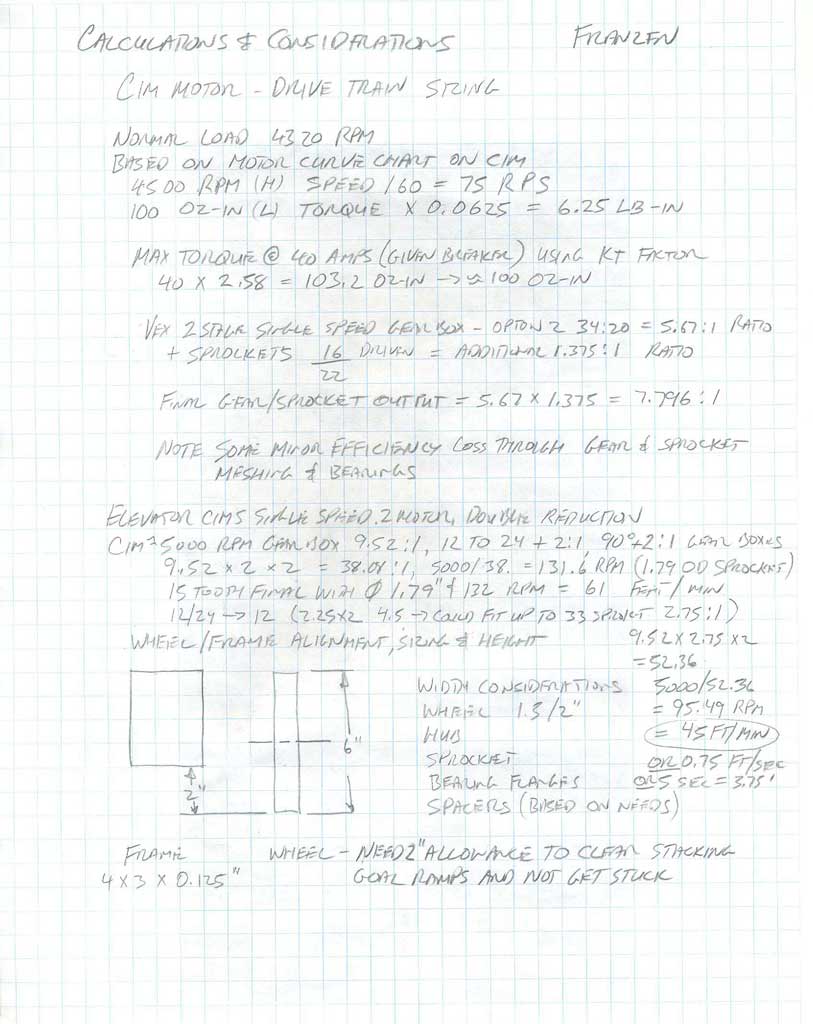 CALCULATIONS & CONSIDERATIONS FRANZEN
CIM MOTOR - DRIVE TRAIN SIZING
NORMAL LOAD 4320 RPM
BASED ON MOTOR CURVE CHART ON CIM
4500 RPM (H) SPEED /60 = 75 RPS
100 OZ-IN (L) TORQUE X 0.0625 = 6.25 LB-IN
MAX TORQUE @ 40 AMPS (GIVEN BREAKER) USING KT FACTOR
40 X 2.58 = 103.2 OZ-IN -> ≈ 100 OZ-IN
VEX 2 STAGE SINGLE SPEED GEAR BOX - OPTON 2 34:20 = 5.67:1 RATIO
+ SPROCKETS 16/22 DRIVEN = ADDITIONAL 1.375:1 RATIO
FINAL GEAR/SPROCKET OUTPUT = 5.67 X 1.375 = 7.796:1
NOTE SOME MINOR EFFICIENCY LOSS THROUGH GEAR & SPROCKET
MESHING & BEARINGS
ELEVATOR CIMS SINGLE SPEED. 2 MOTOR, DOUBLE REDUCTION
CIM 5000 RPM GEAR BOX 9.52:1, 12 TO 24 + 2:1, 90° + 2:1 GEAR BOXES
9.52 X 2 X 2 = 38.08:1, 5000/38. = 131.6 RPM (1.79 OD SPROCKET)
15 TOOTH FINAL WITH Ø 1.79" & 132 RPM = 61 FEET/MIN
12/24 -> 12 (2.25X2 4.5 -> COULD FIT UP TO 33 SPROKT 2.75:1)
WHEEL/FRAME ALIGNMENT, SIZING & HEIGHT
9.52 X 2.75 X 2
= 52.36
5000/52.36
= 95.49 RPM
= 45 FT/MIN
OR 0.75 FT/SEC
OR 5 SEC = 3.75'
WIDTH CONSIDERATIONS
WHEEL 1.3/2"
HUB
SPROCKET
BEARING FLANGES
SPACERS (BASED ON NEEDS)
6"
2"
FRAME
4 X 3 X 0.125"
WHEEL - NEED 2" ALLOWANCE TO CLEAR STACKING
GOAL RAMPS AND NOT GET STUCK